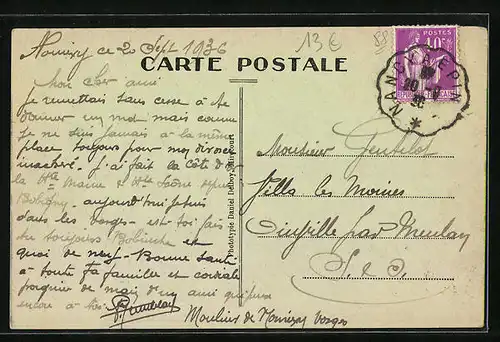 Nomexy ce 20 Sept 1936
13€
CARTE POSTALE
POSTES
40c
NANCY A EPI
20
36
Mon cher ami
Je remettais sans cesse à te
donner un mot mais comme
je ne suis jamais à la même
place toujours pour mes
j'ai fait la côté de
la Hte Marne et Hte Saône
Bobigny - aujourd'hui je suis
dans les Vosges - et toi fais
tu toujours Bobinche et
quoi de neuf - Bonne Santé
à toute ta famille et cordiale
poignée de main d'un ami qui pense
encore à toi
Monsieur Gentilot
Villa les Moines
par Meulan
S. et O.
Moulins de Nomexy Vosges
Phototypie Daniel Delboy, Mirecourt